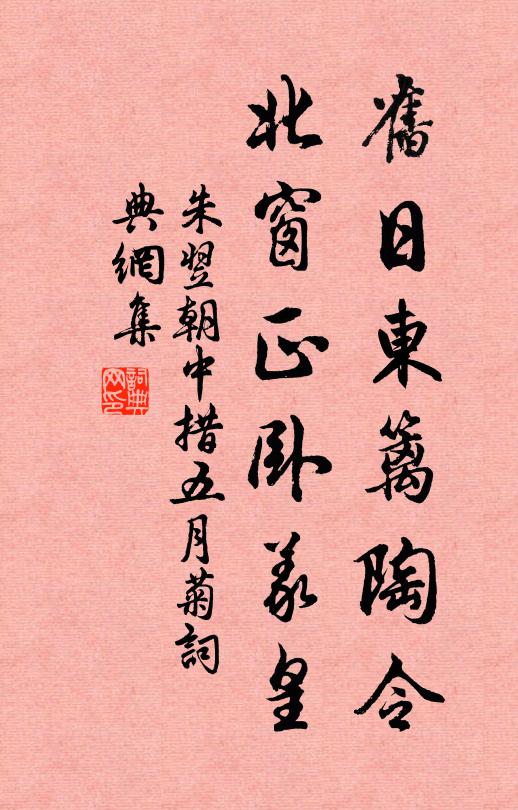 舊日東籬陶令
北窗正臥羲皇
朱翌朝中措五月菊詞
典網集
詞典網印